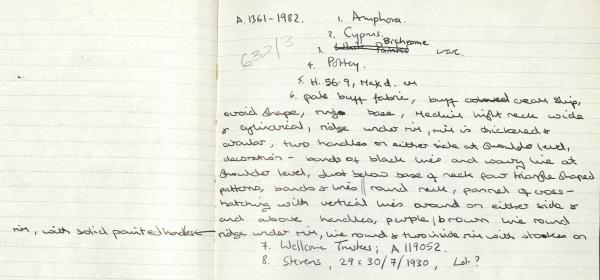 A.1361-1982. 1. Amphora.
2. Cyprus.
632/3
Bichrome
3. White Painted ware.
4. Pottery.
5. H. 56.9, Max d.
6. pale buff fabric, buff coloured cream slip,
ovoid shape, ring base, medium hight neck wide
& cylindrical, ridge under rim, rim is thickened &
circular, two handles on either side at shoulder level,
decoration - bands of black lines and wavy line at
shoulder level, just below base of neck four triangle shaped
patterns, bands & lines round neck, pannel of cross-
hatching with vertical lines around on either side &
and above handles, purple/brown line round
rim, with solid painted handles ridge under rim, line round & two inside rim with strokes on
7. Wellcome Trustees; A 119052.
8. Stevens, 29 & 30/7/1930, Lot ?